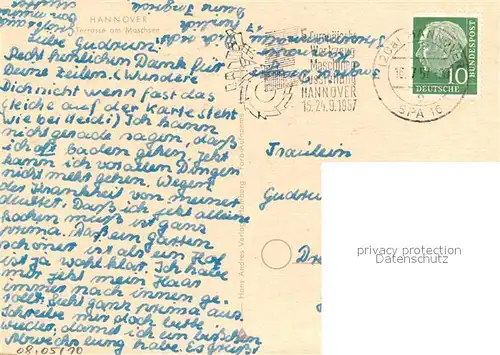 HANNOVER
Terrasse am Maschsee
Liebe Gudrun!
Recht herzlichen Dank für
Deine Zeilen. (Wundere
Dich nicht wenn fast das
gleiche auf der Karte steht
wie bei Heidi) Ich kann
nicht gerade sagen, daß
ich oft baden gehe. Jetzt
kann ich vor allen Dingen
nicht mehr gehen. Wegen
der Krankheit von meiner
Daß ich jetzt alleine
kochen muß ist ganz
prima. Daß ein Garten
schöner ist als ein Hof
ist ja wohl klar. Ich habe
mir jetzt mein Haar
immer nach innen ge-
rollt. Sieht ganz prima aus.
Schreibe mir doch bitte
wieder, damit ich ein bißchen
Abwechslung habe. Es grüßt
Hans Andres Verlag, Hamburg Farb-Aufnahme
5. Europäische
Werkzeug
Maschinen
Ausstellung
HANNOVER
15.-24.9.1957
(20a) HANNOVER
SPA 16
10
DEUTSCHE
BUNDESPOST
Fräulein
Gudru
Dr
privacy protection
Datenschutz
08.05/10